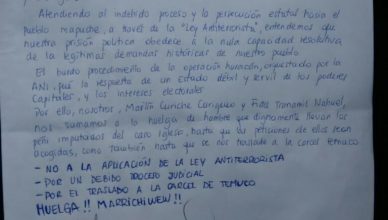 Atendiendo al indebido proceso y la persecución estatal hacia el
Pueblo mapuche, a través de la "Ley Antiterrorista", entendemos que
nuestra prisión política obedece a la nula capacidad resolutiva
de las legítimas demandas históricas de nuestro pueblo.
El burdo procedimiento de la operación huracán, orquestado por la
ANI, fue la respuesta de un Estado débil y servil de los poderes
Capitales, y los intereses electorales
Por ello, nosotros, Martín Curiche Curiqueo y Fidel Tranamil Nahuel,
nos sumamos a la huelga de hambre que dignamente llevan los
peñi imputados del caso iglesia, hasta que las peticiones de ellos sean
acogidas, como también hasta que se nos traslade a la carcel temuco
- NO A LA APLICACIÓN DE LA LEY ANTITERRORISTA
- POR UN DEBIDO PROCESO JUDICIAL
- POR EL TRASLADO A LA CARCEL DE TEMUCO
HUELGA!! MARRICHIWEW!!